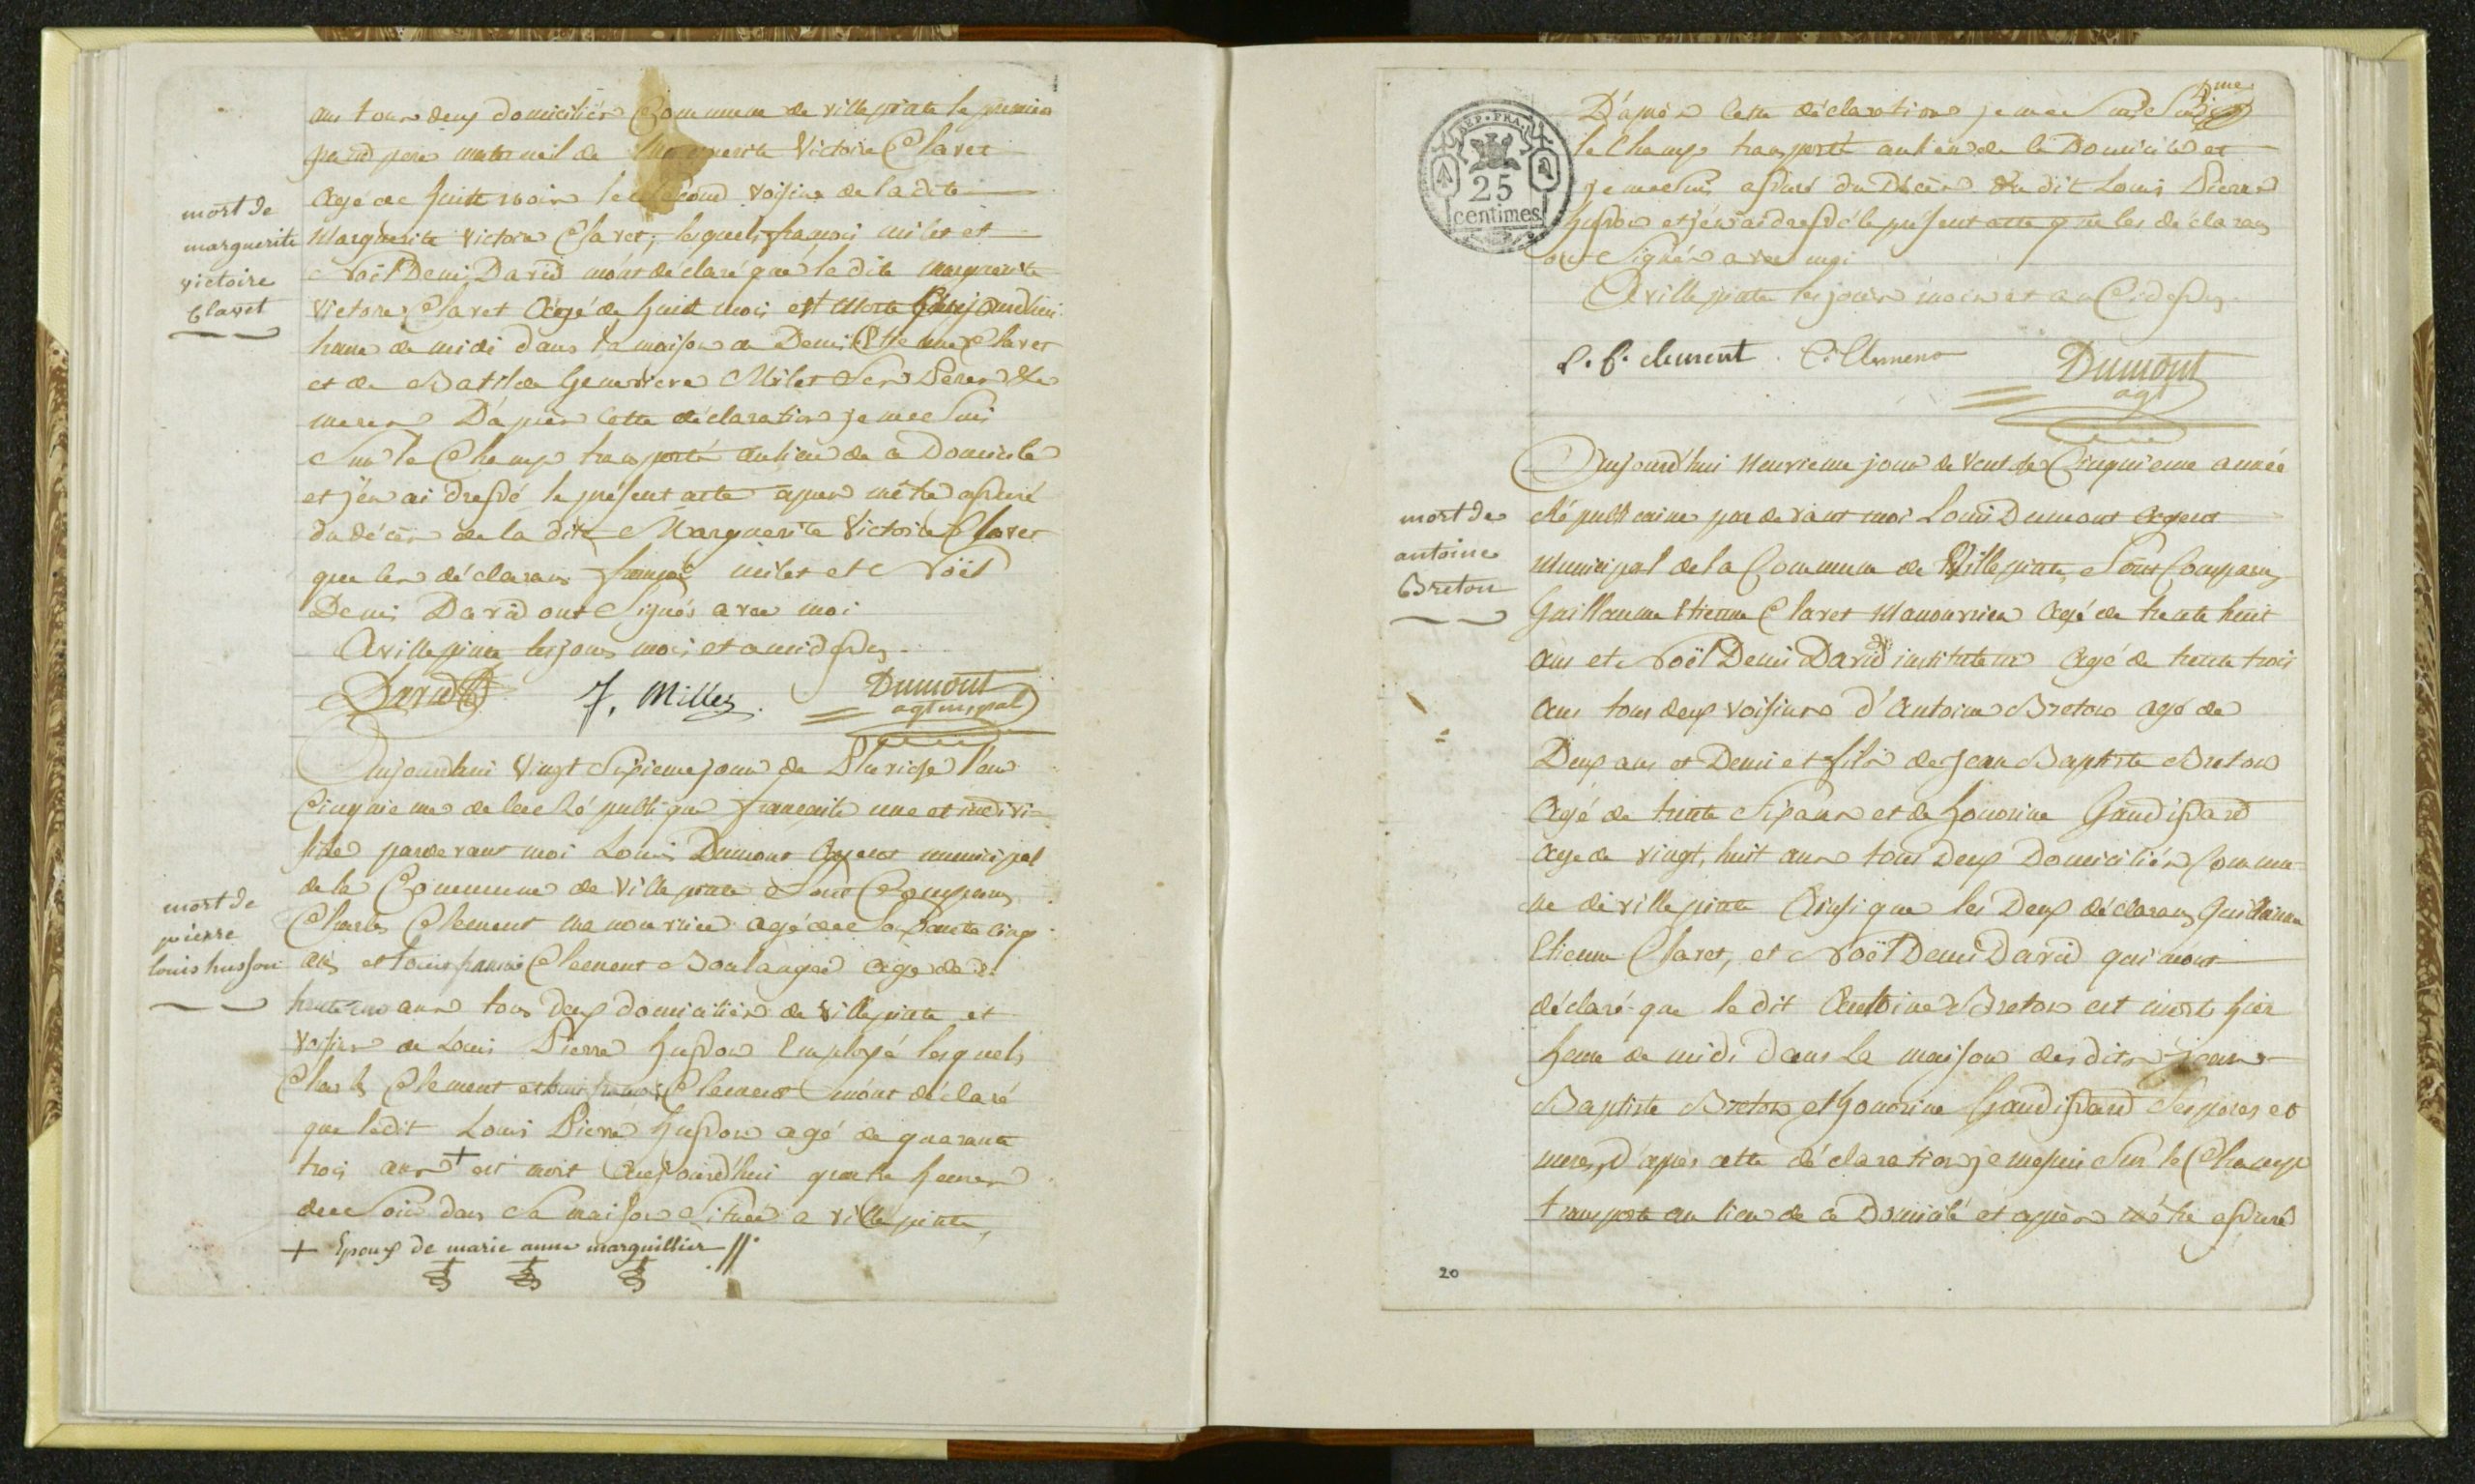 ans tous deux domiciliés Commune de villepinte le premier
grand pere maternel de Marguerite Victoire Claret
agé de huitt mois le second voisin de ladite
mort de
marguerite
victoire
Claret
Marguerite victoire Claret, lesquels françois milet et
Noël Denis David mont déclaré que la dite marguerite
Victoire Claret agé de huit mois est morte aujourdhui
heure de midi dans la maison de Denis Etienne Claret
et de Batilde Genevieve Milet ses Peres &
meres D'après Cette déclaration je mee suis
Sur le Champ transporté au lieu de ce Domicile
et j'en ai dressé le présent acte apres mêtre assuré
du décès de la dite Marguerite Victoire Claret
que les déclarans françois milet et Noël
Denis David ont Signés avec moi
A villepinte les jours mois et an cidessus
David J. Millez Dumont
agt mspal
Aujourdhui Vingt Sixieme jour de Pluviose l'an
Cinquieme de lae République française une et indivi=
sible pardevant moi Louis Dumont Agent municipal
de la Commune de Villepinte Sont Comparus
mort de
pierre
louis husson
Charles Clement manouvrier agé dee Soixante cinq
ans et louis francois Clement Boulanger age de
trente ans tous deux domiciliés de villepinte et
voisins de Louis Pierre husson Employé lesquels
Charles Clement et louis francois Clement mónt déclaré
que ledit Louis Pierre husson agé de quarante
trois ans + est mort Aujourd'hui quatre heures
dee Soir dans sa maison située a villepinte,
+ Epoux de marie anne marguillier //.
D'après Cette déclaration je mee suis Sur
le Champ transporté au lieu de le Domicile et
je mee suis assuré du Décès du dit Louis Pierre
husson et j'en ai dressé le présent acte que les déclarans
ont Signés avec moi
A villepinte les jours mois et an Cidessus
REP. FRA.
25
centimes
L. f. clement. C. Clement Dumont
agt
Aujourd'hui Neuvieme jour de Ventose Cinquieme année
mort de
antoine
Breton
Républicaine par devant moi Louis Dumont Agent
Municipal de la Commune de Villepinte Sont Comparus
Guillaume Etienne Claret Manouvrier Agé de trente huit
ans et Noël Denis David instituteur Agé de trente trois
ans tous deux voisins d'Antoine Breton agé de
Deux ans et Demi et fils de Jean Baptiste Breton
Agé de trente Six ans et de honorine Gaudissard
age de vingt, huit ans tous Deux Domiciliés Commu
ne de villepinte Ainsi que les Deux déclarans Guillaume
Etienne Claret, et Noël Denis David qui mónt
déclaré que le dit Antoine Breton est mort hier
heure de midi Dans la maison desdits jean
Baptiste Breton et honorine Gaudissard ses peres et
meres, D'après cette déclaration je me suis Sur le Champ
transporté au lieu de ce Domicile et après mêtre assuré
20